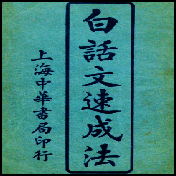 白話文速成法
上海中華書局印行